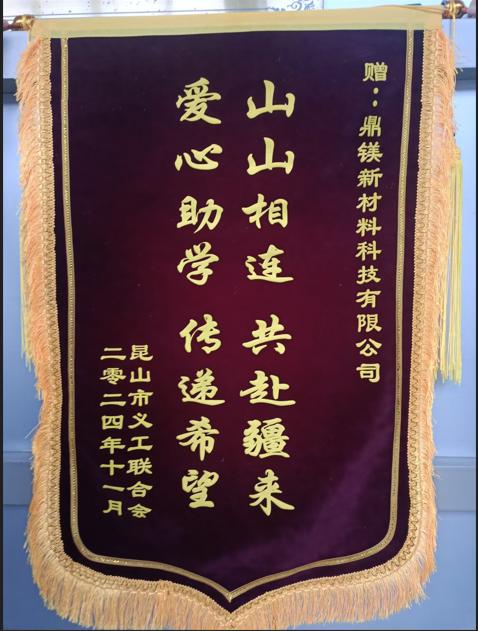 赠：鼎镁新材料科技有限公司
山山相连 共赴疆来
爱心助学 传递希望
昆山市义工联合会
二零二四年十一月